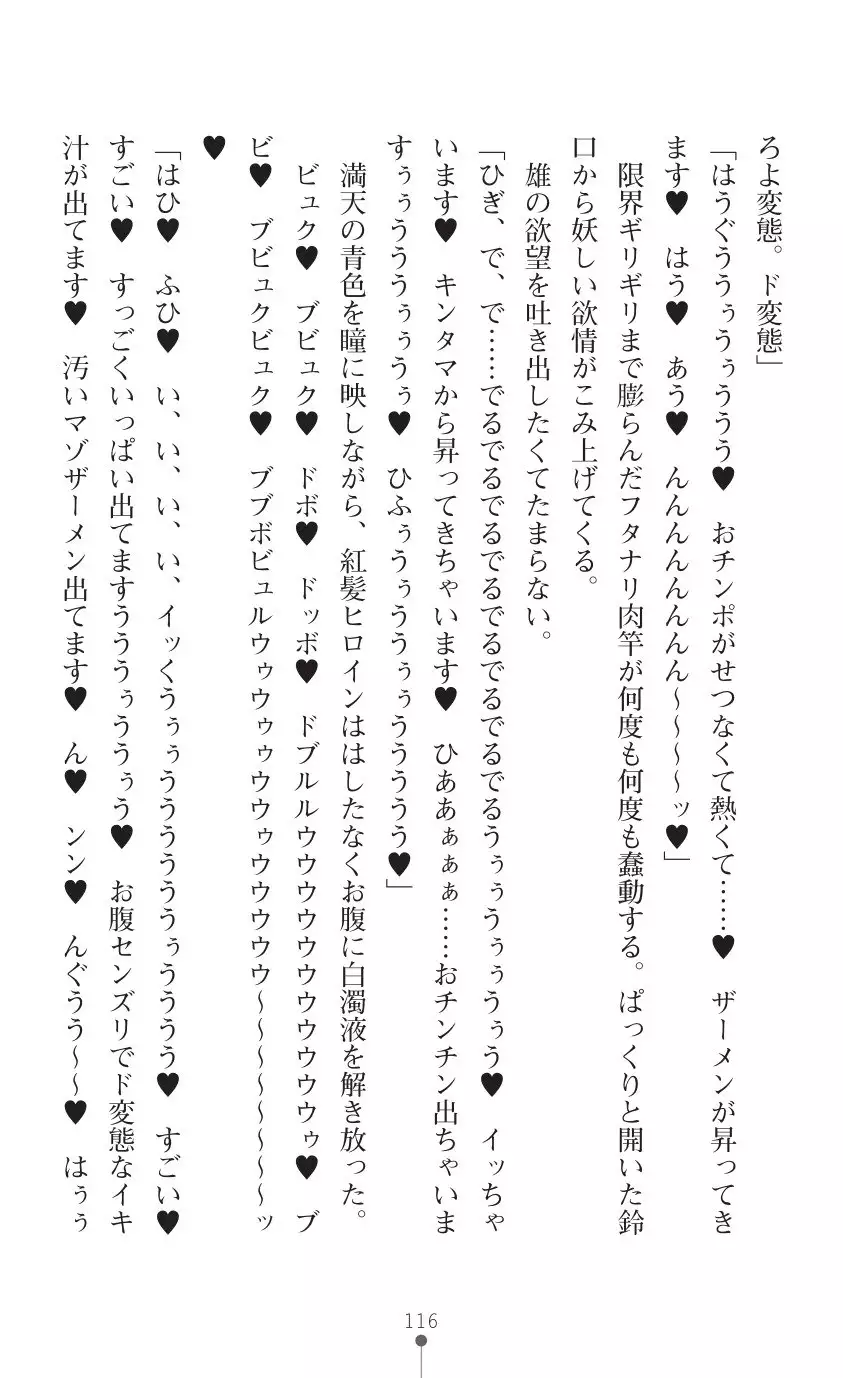 ろよ変態。ド変態」
「はうぐううぅうぅううう♥　おチンポがせつなくて熱くて……♥　ザーメンが昇ってき
ます♥　はう♥　あう♥　んんんんんんんん～～～～ッ♥」
　限界ギリギリまで膨らんだフタナリ肉竿が何度も何度も蠢動する。ぱっくりと開いた鈴
口から妖しい欲情がこみ上げてくる。
　雄の欲望を吐き出したくてたまらない。
「ひぎ、で、で……でるでるでるでるでるでるでるでるうぅぅうぅぅうぅう♥　イッちゃ
います♥　キンタマから昇ってきちゃいます♥　ひああぁぁぁ……おチンチン出ちゃいま
すぅぅうううぅぅうぅ♥　ひふぅうぅううぅぅううううう♥」
　満天の青色を瞳に映しながら、紅髪ヒロインははしたなくお腹に白濁液を解き放った。
　ビュク♥　ブビュク♥　ドボ♥　ドッボ♥　ドブルルウウウウウウウウウウウウゥ♥　ブ
ビ♥　ブビュクビュク♥　ブブボビュルウゥウゥゥウウゥウウウウウ～～～～～～～～ッ
♥
「はひ♥　ふひ♥　い、い、い、い、イッくうぅぅうううううううぅうううう♥　すごい♥
すごい♥　すっごくいっぱい出てますうううぅううぅう♥　お腹センズリでド変態なイキ
汁が出てます♥　汚いマゾザーメン出てます♥　ん♥　ンン♥　んぐうう～～♥　はぅぅ
116